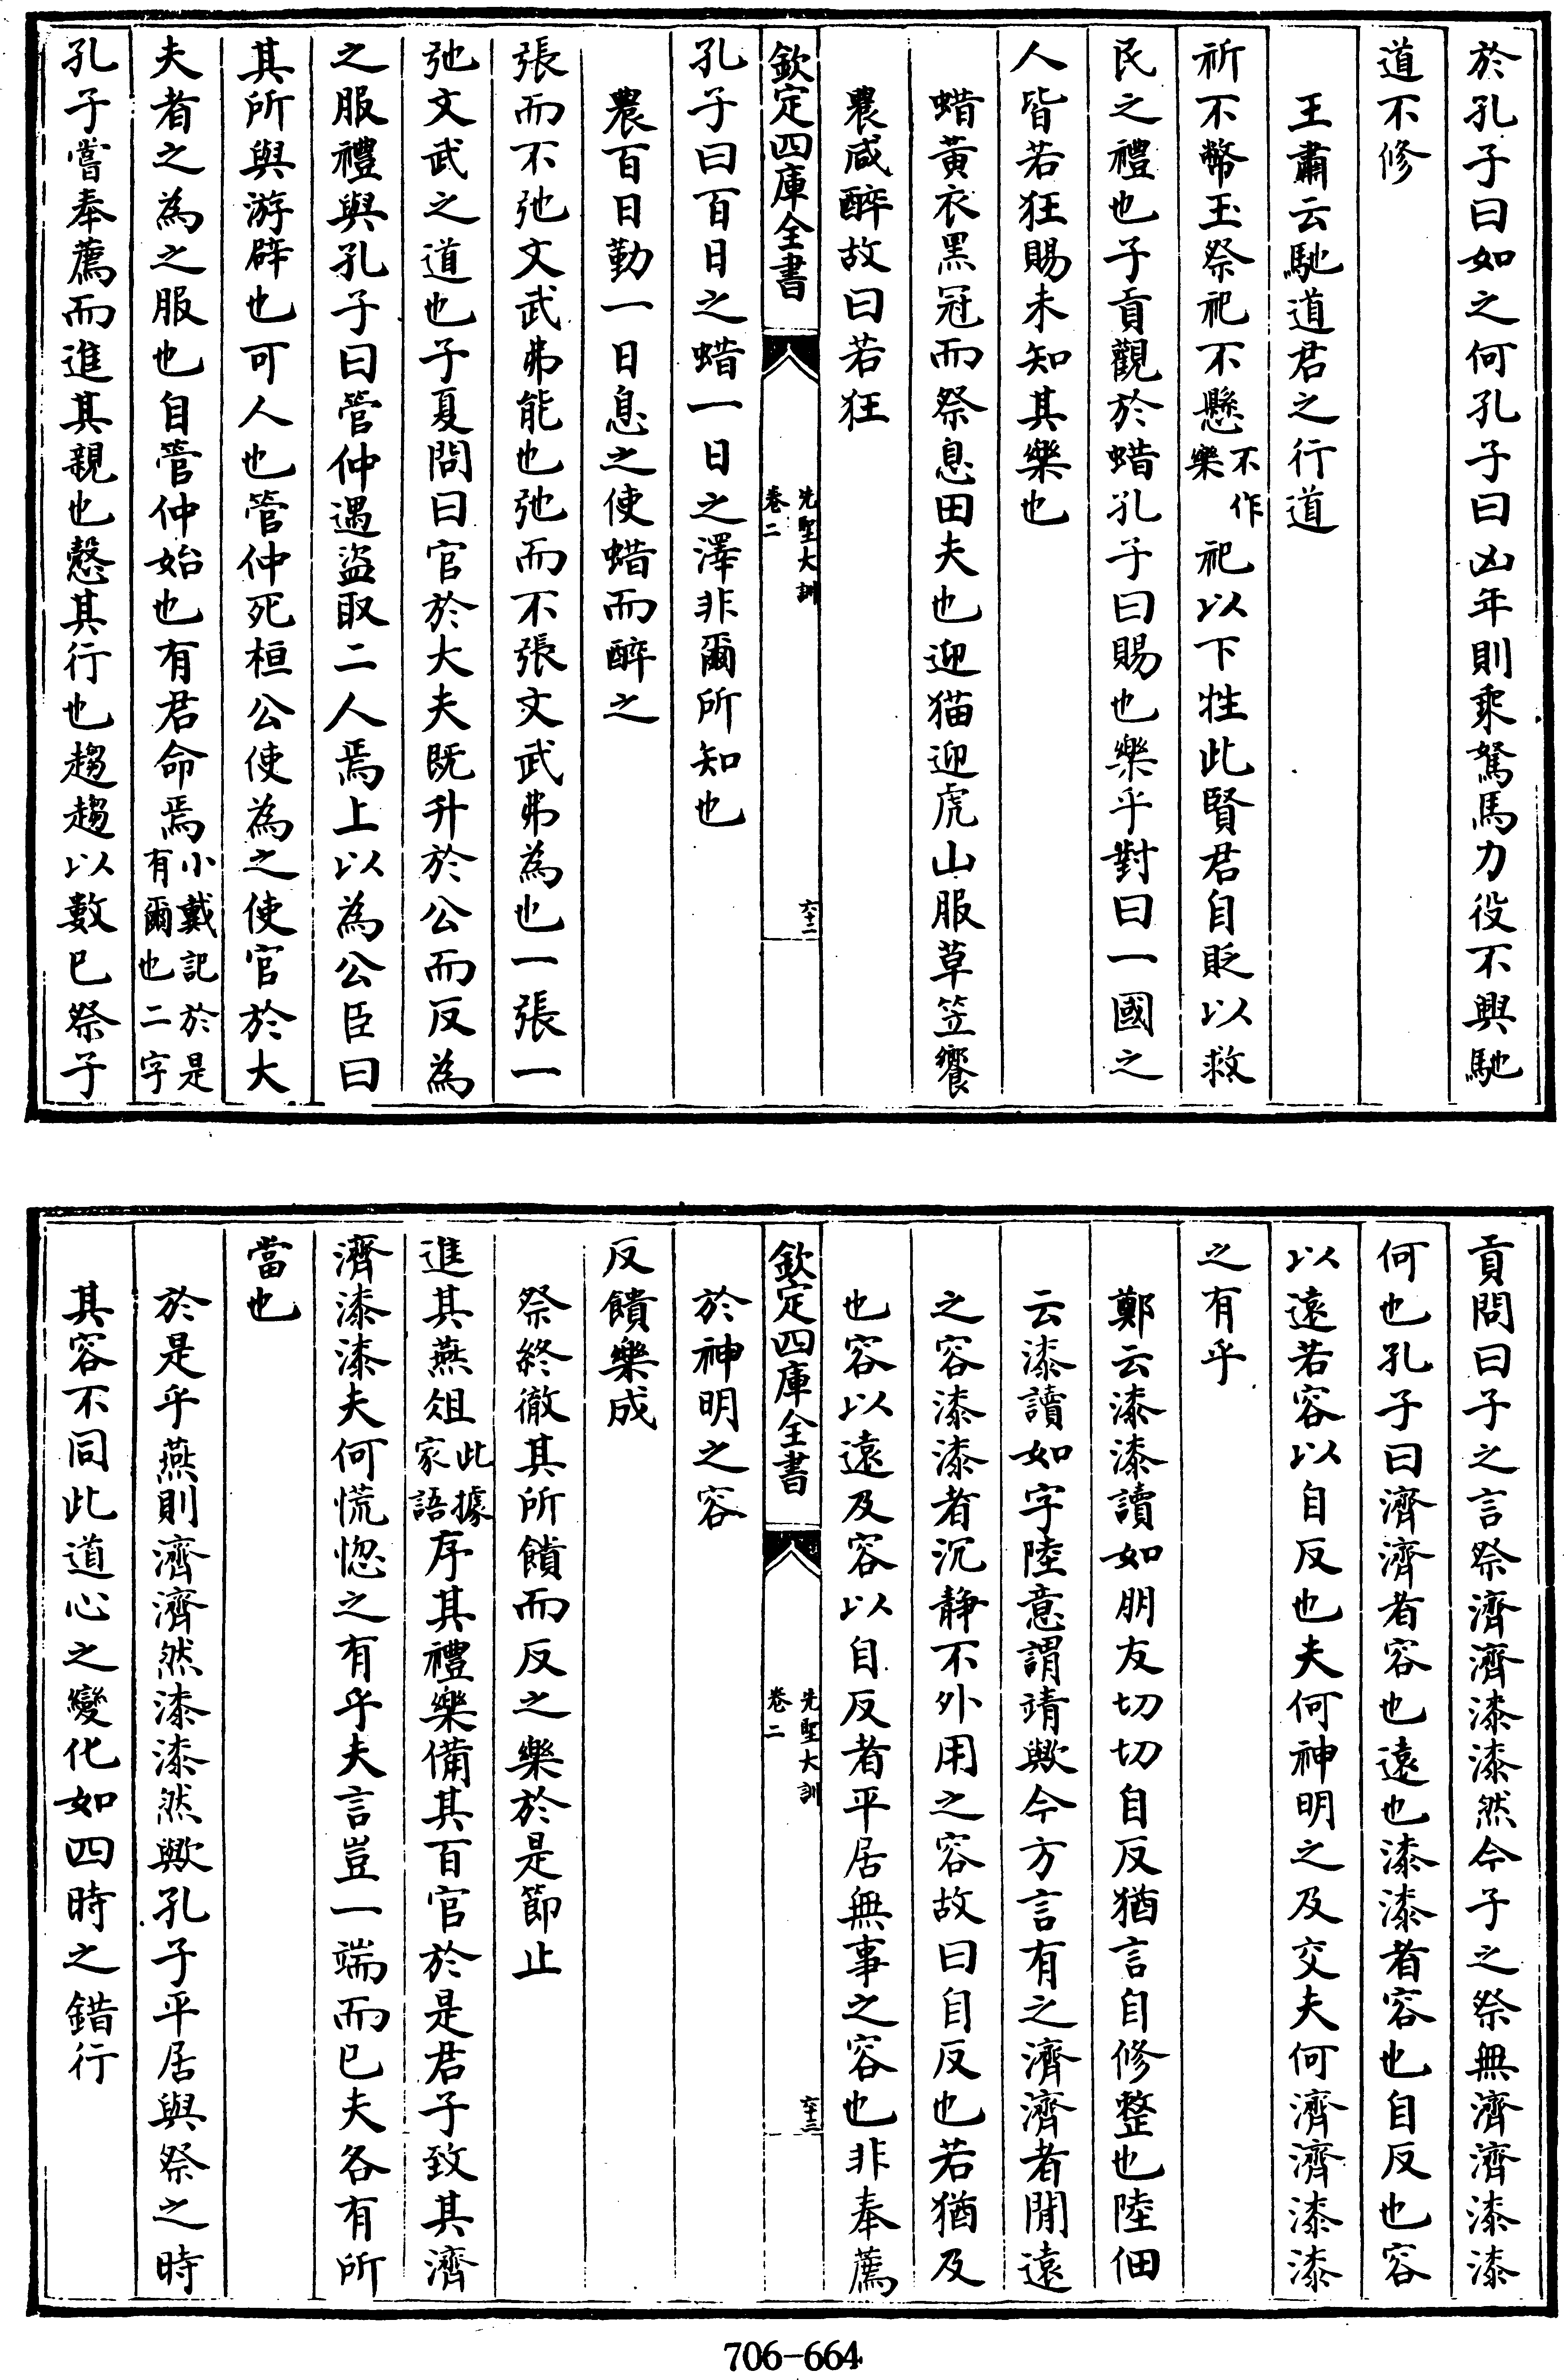 於孔子曰如之何孔子曰凶年則乘駑馬力役不興馳
道不修
王肅云馳道君之行道
祈不幣玉祭祀不懸不作樂祀以下牲此賢君自貶以救
民之禮也子貢觀於蜡孔子曰賜也樂乎對曰一國之
人皆若狂賜未知其樂也
蜡黃衣黑冠而祭息田夫也迎猫迎虎山服草笠饗
農咸醉故曰若狂
欽定四庫全書
先聖大訓
卷二
六十二
孔子曰百日之蜡一日之澤非爾所知也
農百日勤一日息之使蜡而醉之
張而不弛文武弗能也弛而不張文武弗為也一張一
弛文武之道也子夏問曰官於大夫既升於公而反為
之服禮與孔子曰管仲遇盜取二人焉上以為公臣曰
其所與游辟也可人也管仲死桓公使為之使官於大
夫者之為之服也自管仲始也有君命焉小戴記於是有爾也二字
孔子嘗奉薦而進其親也慤其行也趨趨以數已祭子
貢問曰子之言祭濟濟漆漆然今子之祭無濟濟漆漆
何也孔子曰濟濟者容也遠也漆漆者容也自反也容
以遠若容以自反也夫何神明之及交夫何濟濟漆漆
之有乎
鄭云漆漆讀如朋友切切自反猶言自修整也陸佃
云漆讀如字陸意謂靖歟今方言有之濟濟者閒遠
之容漆漆者沉静不外用之容故曰自反也若猶及
也容以遠及容以自反者平居無事之容也非奉薦
欽定四庫全書
先聖大訓
卷二
六十三
於神明之容
反饋樂成
祭終徹其所饋而反之樂於是節止
進其燕俎此據家語序其禮樂備其百官於是君子致其濟
濟漆漆夫何慌惚之有乎夫言豈一端而已夫各有所
當也
於是乎燕則濟濟然漆漆然歟孔子平居與祭之時
其容不同此道心之變化如四時之錯行
706-664